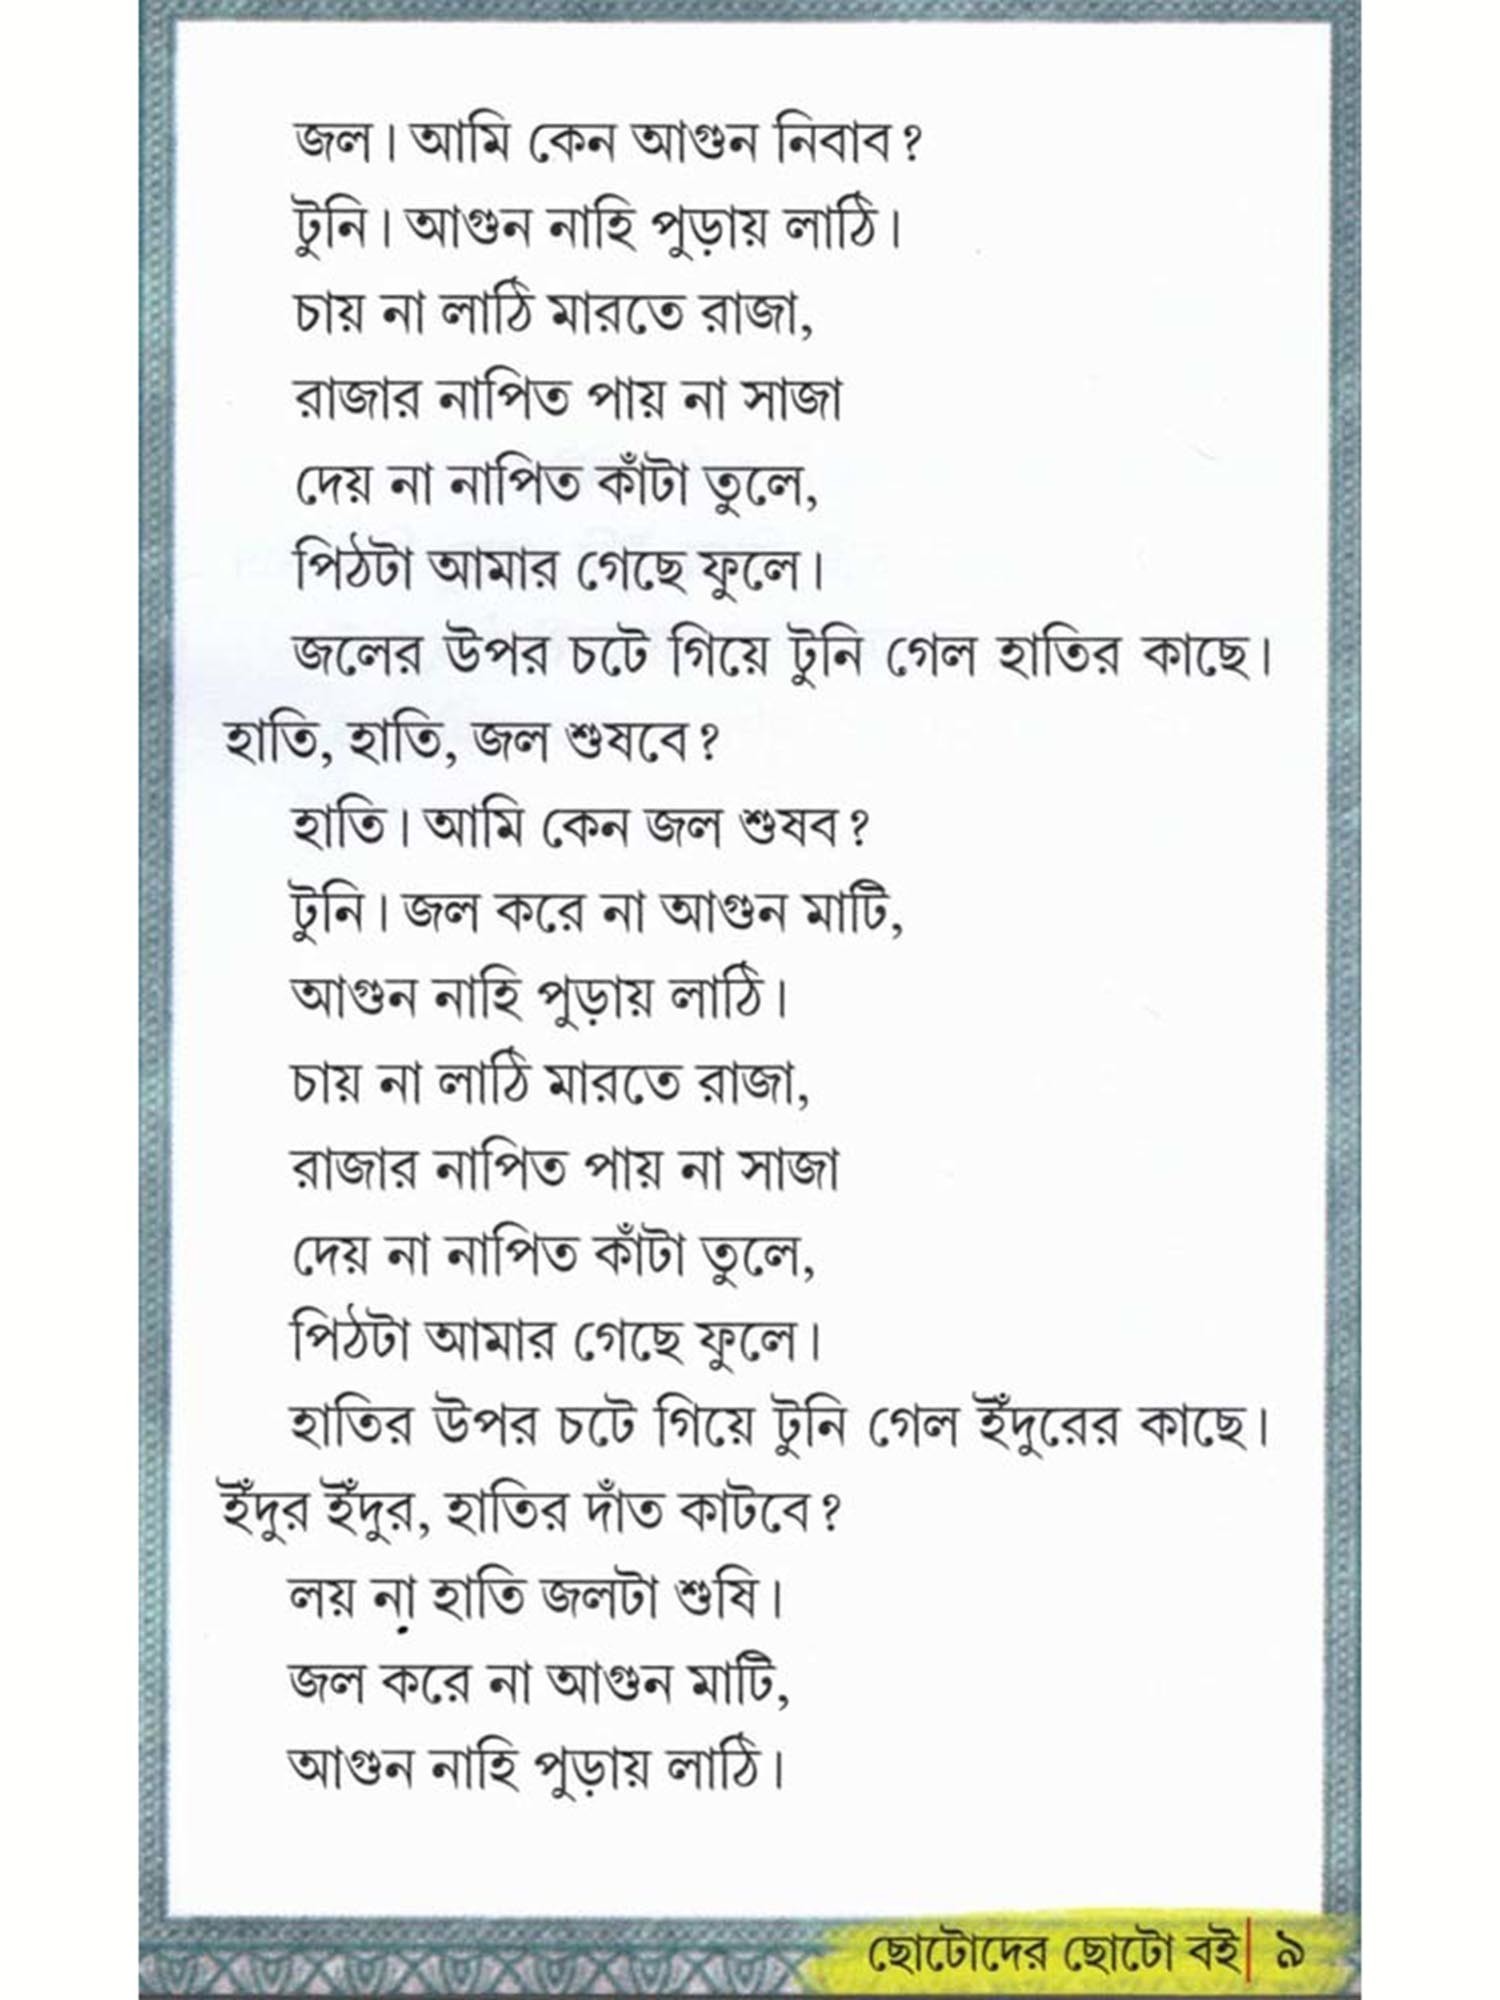 জল। আমি কেন আগুন নিবাব?
টুনি। আগুন নাহি পুড়ায় লাঠি।
চায় না লাঠি মারতে রাজা,
রাজার নাপিত পায় না সাজা
দেয় না নাপিত কাঁটা তুলে,
পিঠটা আমার গেছে ফুলে।
জলের উপর চটে গিয়ে টুনি গেল হাতির কাছে।
হাতি, হাতি, জল শুষবে?
হাতি। আমি কেন জল শুষব?
টুনি। জল করে না আগুন মাটি,
আগুন নাহি পুড়ায় লাঠি।
চায় না লাঠি মারতে রাজা,
রাজার নাপিত পায় না সাজা
দেয় না নাপিত কাঁটা তুলে,
পিঠটা আমার গেছে ফুলে।
হাতির উপর চটে গিয়ে টুনি গেল ইঁদুরের কাছে।
ইঁদুর ইঁদুর, হাতির দাঁত কাটবে?
লয় না হাতি জলটা শুষি।
জল করে না আগুন মাটি,
আগুন নাহি পুড়ায় লাঠি।
ছোটোদের ছোটো বই| ৯